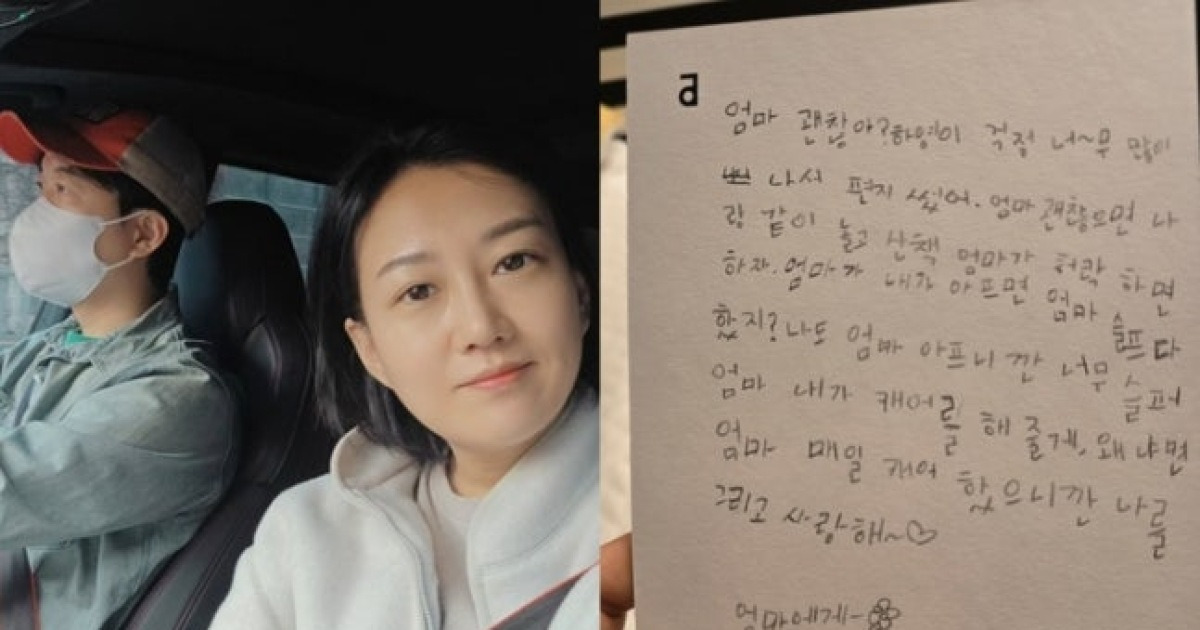 a
엄마 괜찮아? 하영이 걱정 너~무 많이
나서 편지 썼어. 엄마 괜찮으면 나
랑 같이 놀고 산책 엄마가 허락 하면
하자. 엄마가 내가 아프면 엄마 슬프다
했지? 나도 엄마 아프니깐 너무 슬퍼
엄마 내가 캐어를 해 줄게, 왜냐면
엄마 매일 캐어 했으니깐 나를
그리고 사랑해~♡
엄마에게-